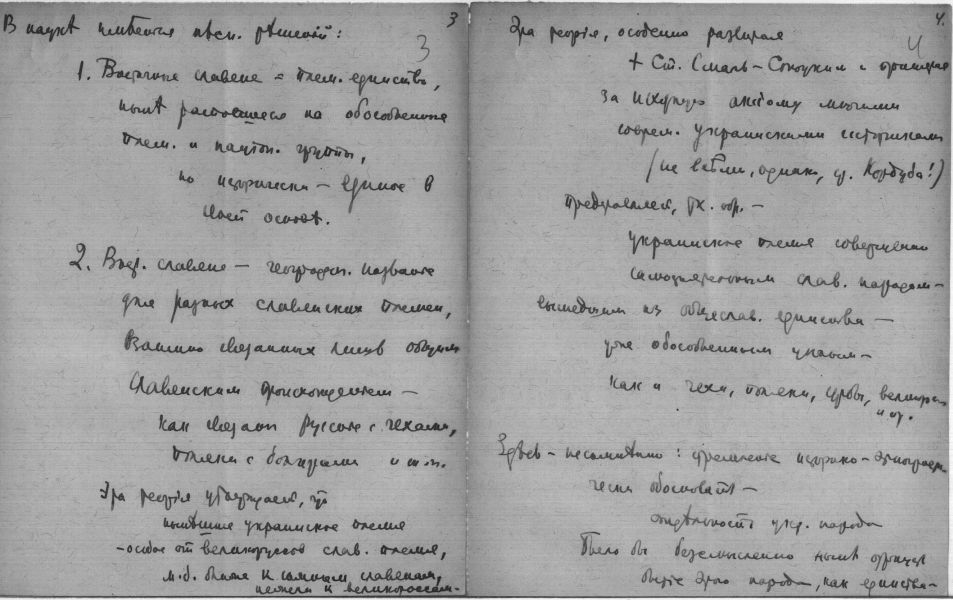 3
В наукѣ имѣется нѣск. рѣшеній:
3
1. Восточные славяне = плем. единство,
нынѣ распавшееся на обособленные
плем. и націон. группы,
но исторически – единое в
своей основѣ.
2. Вост. славяне – географич. названіе
для разных славянских племен,
взаимно связанных лишь общим
славянским происхожденіем –
как связаны русские с чехами,
поляки с болгарами и т.п.
Эта теорія утверждает, что
нынѣшнее украинское племя
– особое от великоруссов слав. племя,
м.б. ближе к южным славянам,
нежели к великороссам –
4.
Эта теорія, особенно развитая
4
+ Ст. Смаль-Стоцким и принятая
за исходную аксіому многими
соврем. украинскими историками
(не всѣми, однако, ср. Кордуба!)
представляет, т.обр. –
украинское племя совершенно
самостоятельным слав. народом –
вышедшим из общеслав. единства –
уже обособленным цѣлым –
как и чехи, поляки, сербы, великороссы
и др.
Здѣсь – несомнѣнно: стремленіе историко-этнографи-
чески обосновать –
отдѣльность укр. народа
Было бы безсмысленно нынѣ отрицать
бытіе этого народа, как единства –